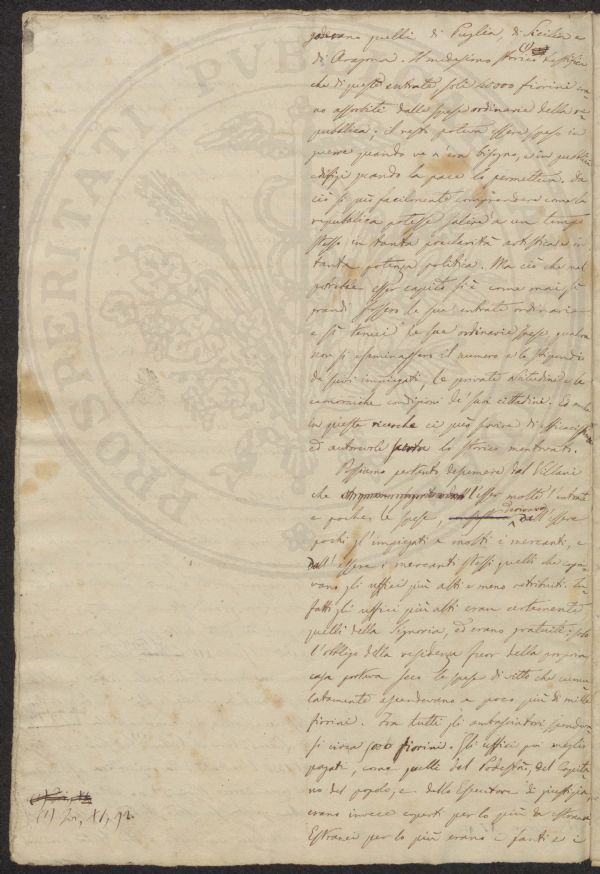 godevano quelli di Puglia, di Sicilia e
di Aragona. Il medesimo storico testifica (1)
che di queste entrate soli 40000 fiorini era
no assorbiti dalle spese ordinarie della re
pubblica; il resto poteva essere speso in
guerre quando ve n'era bisogno, e in pubblici
edifizi quando la pace lo permetteva. Da
ciò si può facilmente comprendere come la
repubblica potesse salire a un tempo
stesso in tanta preclarità artistica e in
tanta potenza politica. Ma ciò che mal
potrebbe esser capito si è come mai sì
grandi fossero le sue entrate ordinarie
e sì tenui le sue ordinarie spese, qualora
non si esaminassero il numero e lo stipendio
de' suoi impiegati, le private abitudini e le
economiche condizioni de' suoi cittadini. Ed anche
in queste ricerche ci può servire di efficacissima
ed autorevole scorta lo storico mentovato.
Possiamo pertanto desumere dal Villani
che l'esser molte l'entrate
e poche le spese, derivava dall'essere
pochi gl'impiegati e molti i mercanti, e
dall'essere i mercanti stessi quelli che copri
vano gli uffici più alti e meno retribuiti. In
fatti gli uffici più alti eran certamente
quelli della Signoria, ed erano gratuiti: solo
l'obbligo della residenza fuor della propria
casa portava seco le spese di vitto che cumu
latamente ascendevano a poco più di mille
fiorini. Fra tutti gli ambasciatori spendeva
si circa 500 fiorini. Gli uffici poi meglio
pagati, come quelli del Podestà, del Capita
no del popolo, e dello Esecutore di giustizia,
erano invece coperti per lo più da
Estranei per lo più erano i fanti e i
(1) XI, 92.